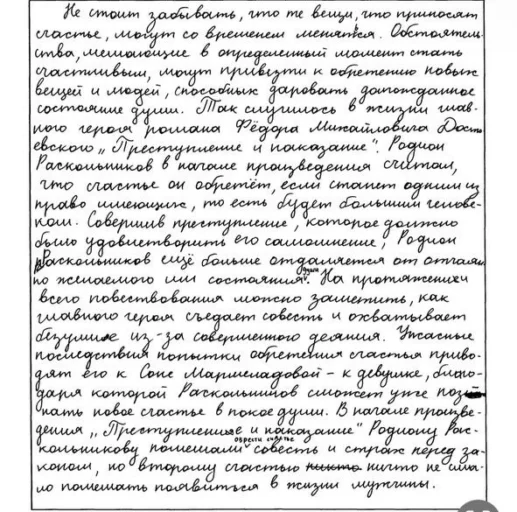 Не стоит забывать, что те вещи, что приносят
счастье, могут со временем меняться. Обстоятель-
ства, мешающие в определенный момент стать
счастливым, могут привезти к обретению новых
вещей и людей, способных даровать долгожданное
состояние души. Так случилось в жизни глав-
ного героя романа Фёдора Михайловича Досто-
евского „Преступление и наказание". Родион
Раскольников в начале произведения считал,
что счастье он обретёт, если станет одним из
право имеющих, то есть будет большим челове-
ком. Совершив преступление, которое должно
было удовлетворить его самомнение, Родион
Раскольников ещё больше отдаляется от отчаян-
но желаемого им состояния души. На протяжении
всего повествования можно заметить, как
главного героя съедает совесть и охватывает
безумие из-за совершенного деяния. Ужасные
последствия попытки обретения счастья приво-
дят его к Соне Мармеладовой - к девушке, благо-
даря которой Раскольников сможет уже поз-
нать новое счастье в покое души. В начале произве-
дения „Преступление и наказание" Родиону Рас-
кольникову помешали обрести счастье совесть и страх перед за-
коном, но второму счастью ничто не смог-
ло помешать появиться в жизни мужчины.